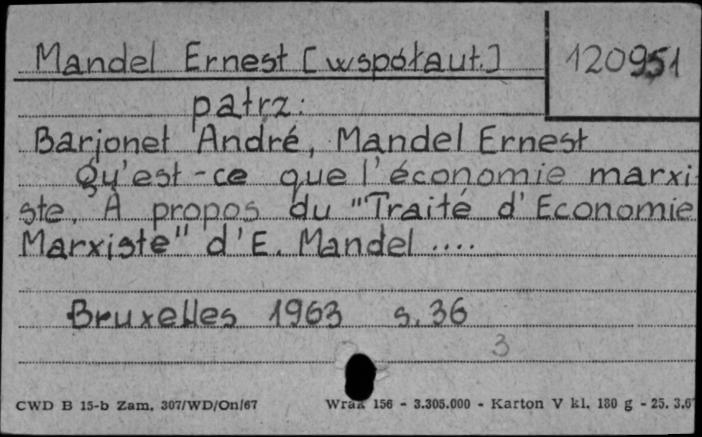 Mandel Ernest [współaut.] 120951
patrz:
Barjonet André, Mandel Ernest
Qu'est-ce que l'économie marxi-
ste. A propos du "Traité d'Economie
Marxiste" d'E. Mandel ....
Bruxelles 1963 s. 36
3
CWD B 15-b Zam. 307/WD/On/67 Wrak 156 - 3.305.000 - Karton V kl. 180 g - 25. 3.67